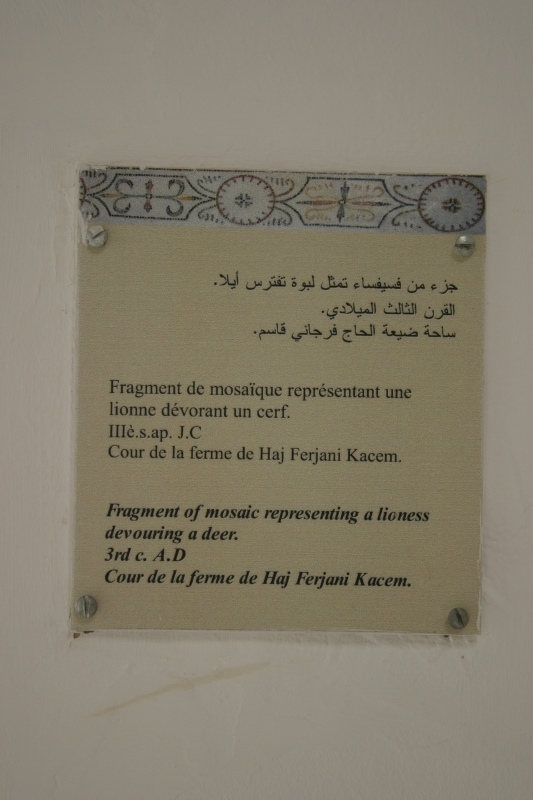 جزء من فسيفساء تمثل لبوة تفترس أيلا.
القرن الثالث الميلادي.
ساحة ضيعة الحاج فرجاني قاسم.
Fragment de mosaïque représentant une
lionne dévorant un cerf.
IIIè.s.ap. J.C
Cour de la ferme de Haj Ferjani Kacem.
Fragment of mosaic representing a lioness
devouring a deer.
3rd c. A.D
Cour de la ferme de Haj Ferjani Kacem.